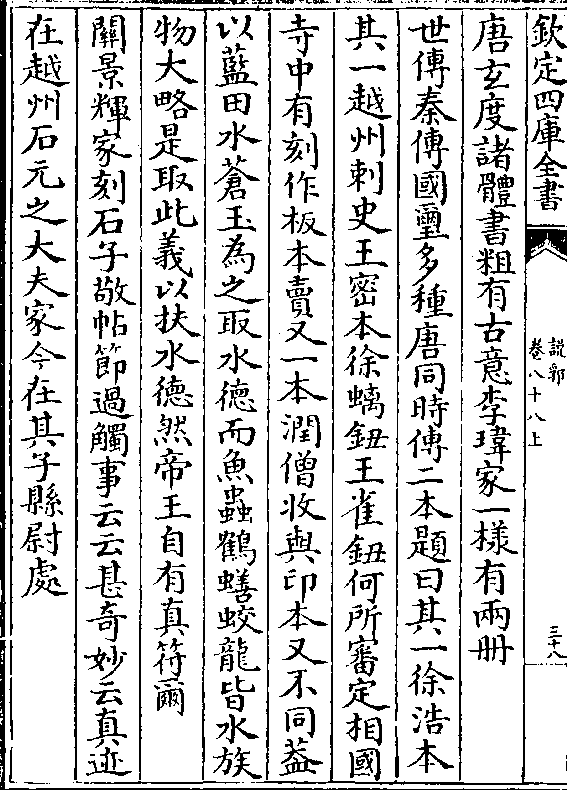 欽定四庫全書
說郛
卷八十八上
三十八
唐玄度諸體書粗有古意李瑋家一樣有兩册
世傳秦傳國璽多種唐同時傳二本題曰其一徐浩本
其一越州刺史王密本徐螭鈕王雀鈕何所審定相國
寺中有刻作板本賣又一本潤僧收與印本又不同葢
以藍田水蒼玉為之取水德而魚蟲鶴蟮蛟龍皆水族
物大略是取此義以扶水德然帝王自有真符爾
關景輝家刻石子敬帖節過觸事云云甚奇妙云真迹
在越州石元之大夫家今在其子縣尉處